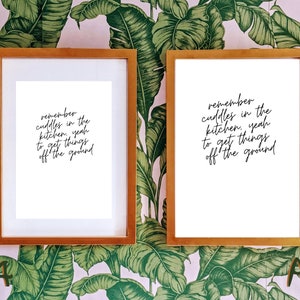 remember
cuddles in the
kitchen, yeah
to get things
off the ground
remember
cuddles in the
kitchen, yeah
to get things
off the ground